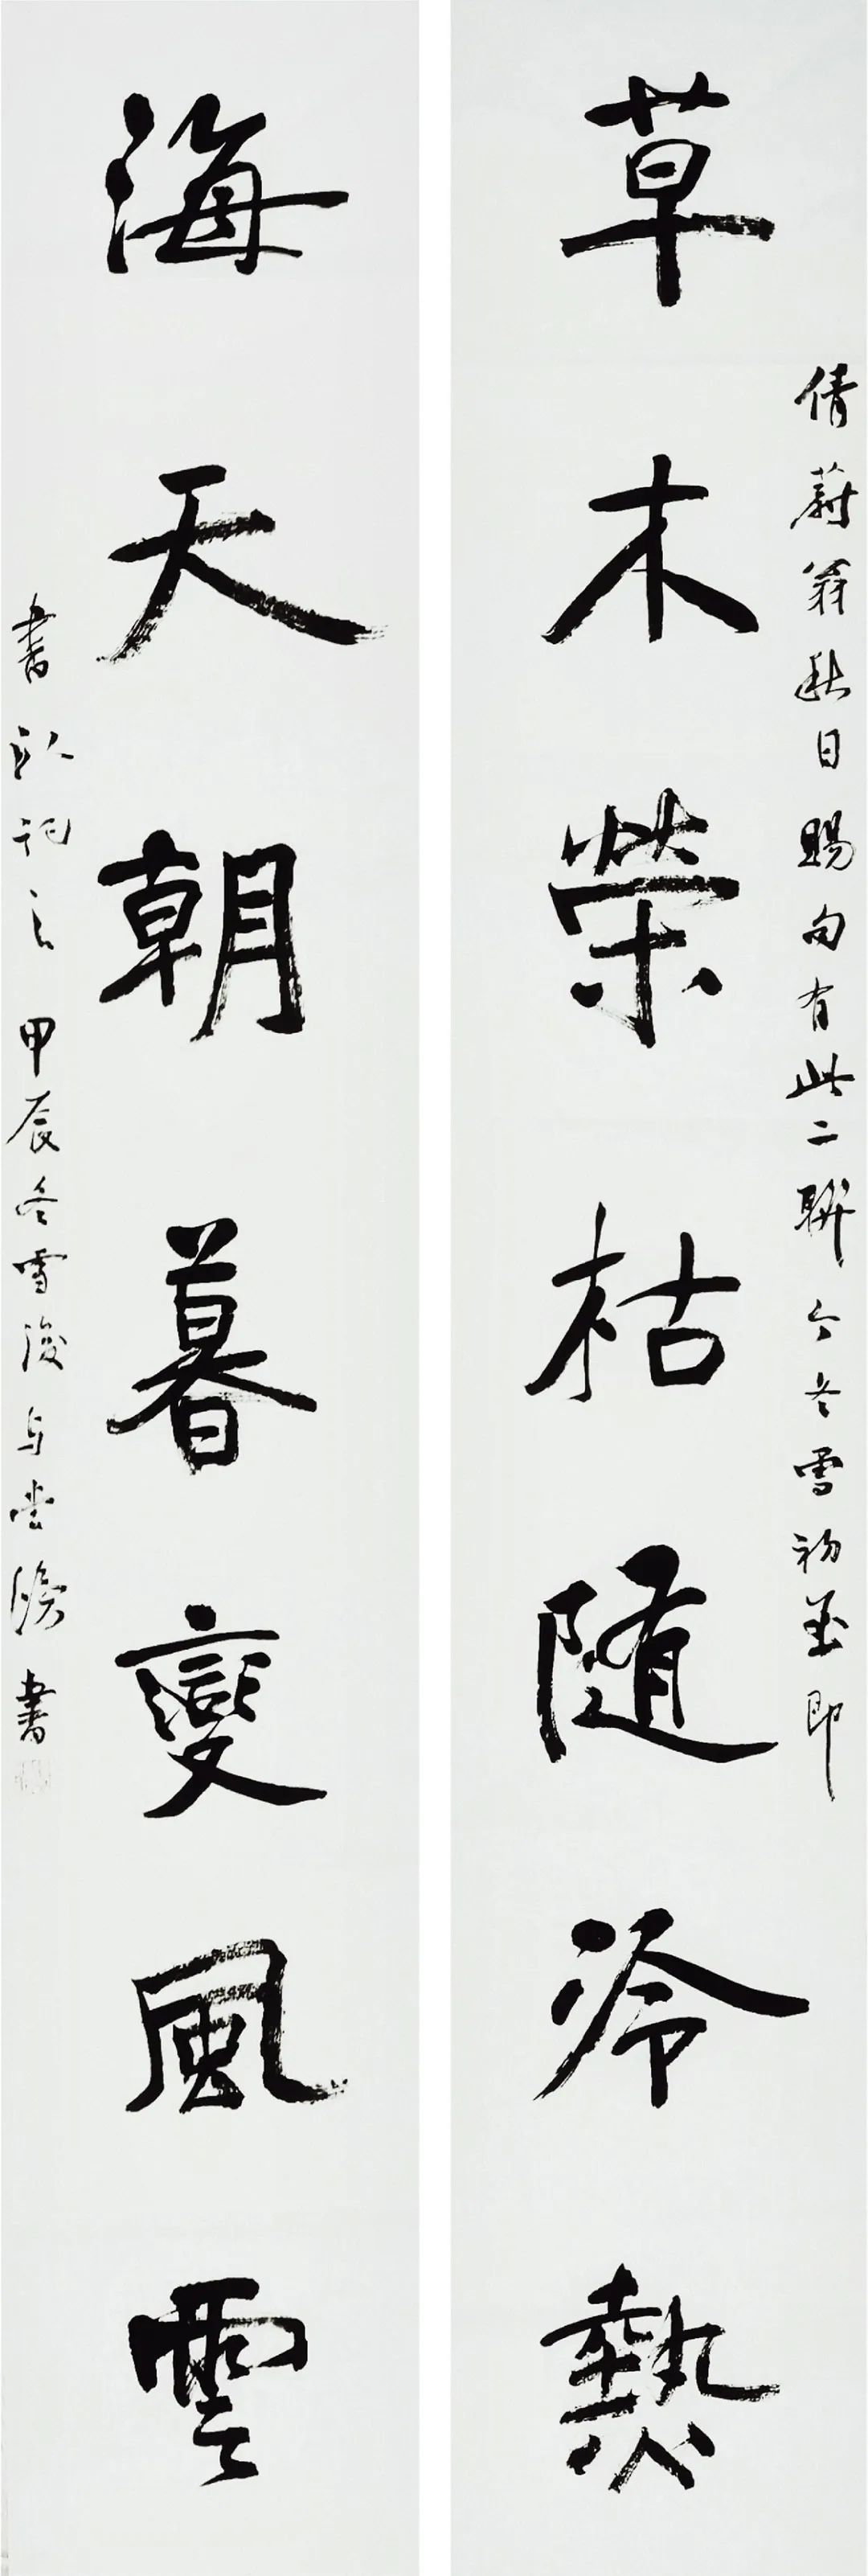 草木榮枯随冷熱
倩蔚翁秋日賜句有此二聯今冬雪初至即
海天朝暮變風雲
書以記之甲辰冬雪後与堂 書